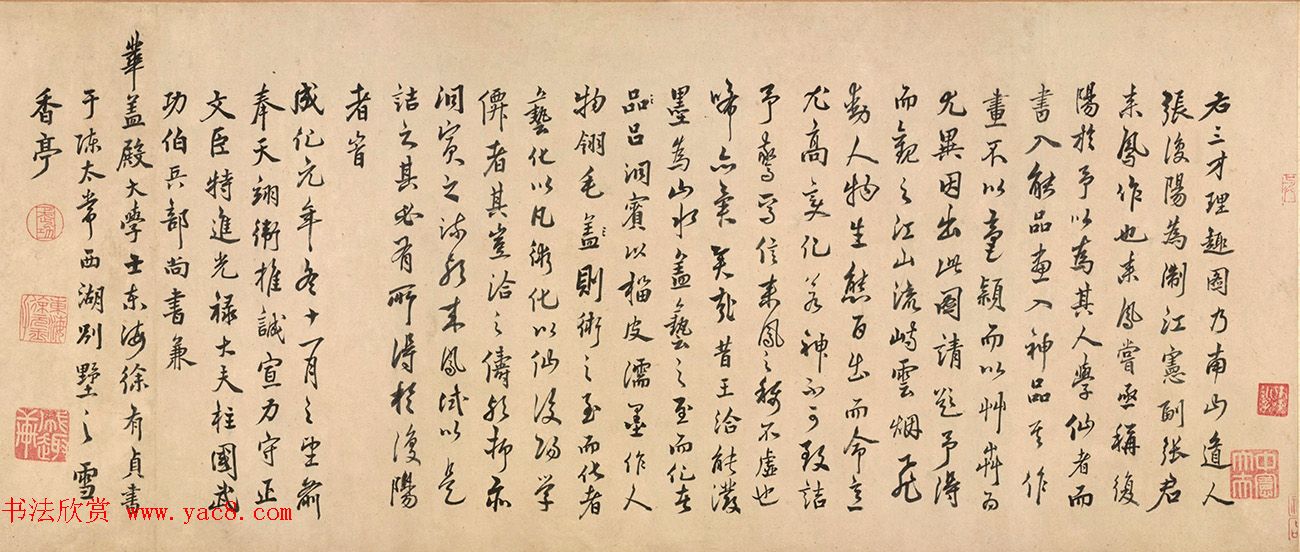 右三才理趣圖乃南山道人
張復陽為浙江憲副張君
來鳳作也來鳳嘗亟稱復
陽於予以為其人學仙者而
書入能品畫入神品其作
畫不以毫穎而以艸
尤異因出此圖請題予得
而觀之江山流峙雲烟飛
動人物生態百出而命意
尤高變化若神不可致詰
予驚焉信來鳳之稱不虛也
噫亦異矣哉昔王洽能潑
墨為山水蓋藝之至而化者
品品呂洞賓以榴皮濡墨作人
物翎毛蓋則術之至而化者
藝化以凡術化以仙復陽學
仙者其豈洽之儔歟抑亦
洞賓之流歟來鳳試以是
詰之其必有所得於復陽
者習
成化元年冬十一月之望前
奉天翊衛推誠宣力守正
文臣特進光祿大夫柱國武
功伯兵部尚書兼
華蓋殿大學士東海徐有貞書
于陳太常西湖別墅之雪
香亭
书法欣赏 www.yac8.com